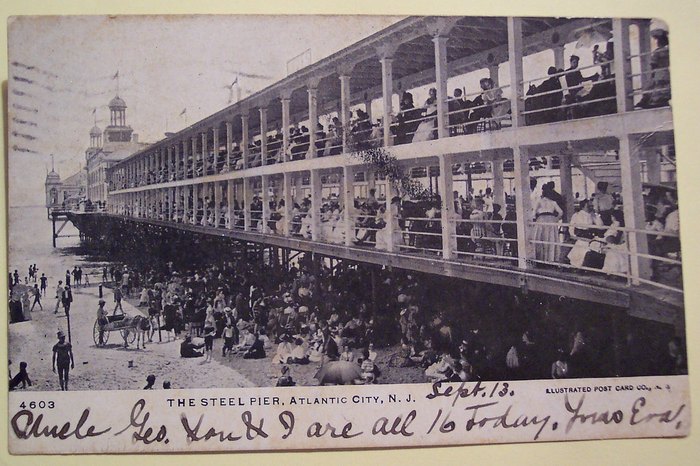 Sept. 13.
4603 THE STEEL PIER, ATLANTIC CITY, N. J. ILLUSTRATED POST CARD CO., N. Y.
Uncle Geo. You & I are all 16 Today. Yours Eva.